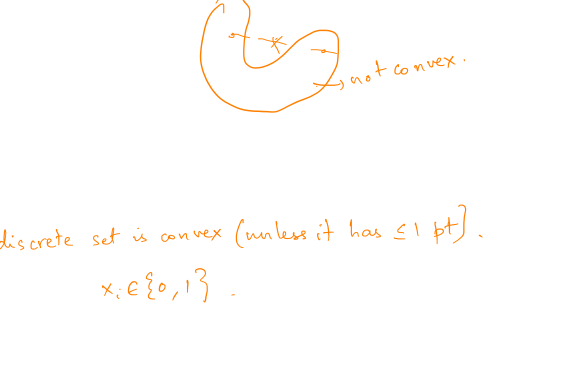 not convex.
discrete set is convex (unless it has ≤ 1 pt).
x_i ∈ {0, 1}.